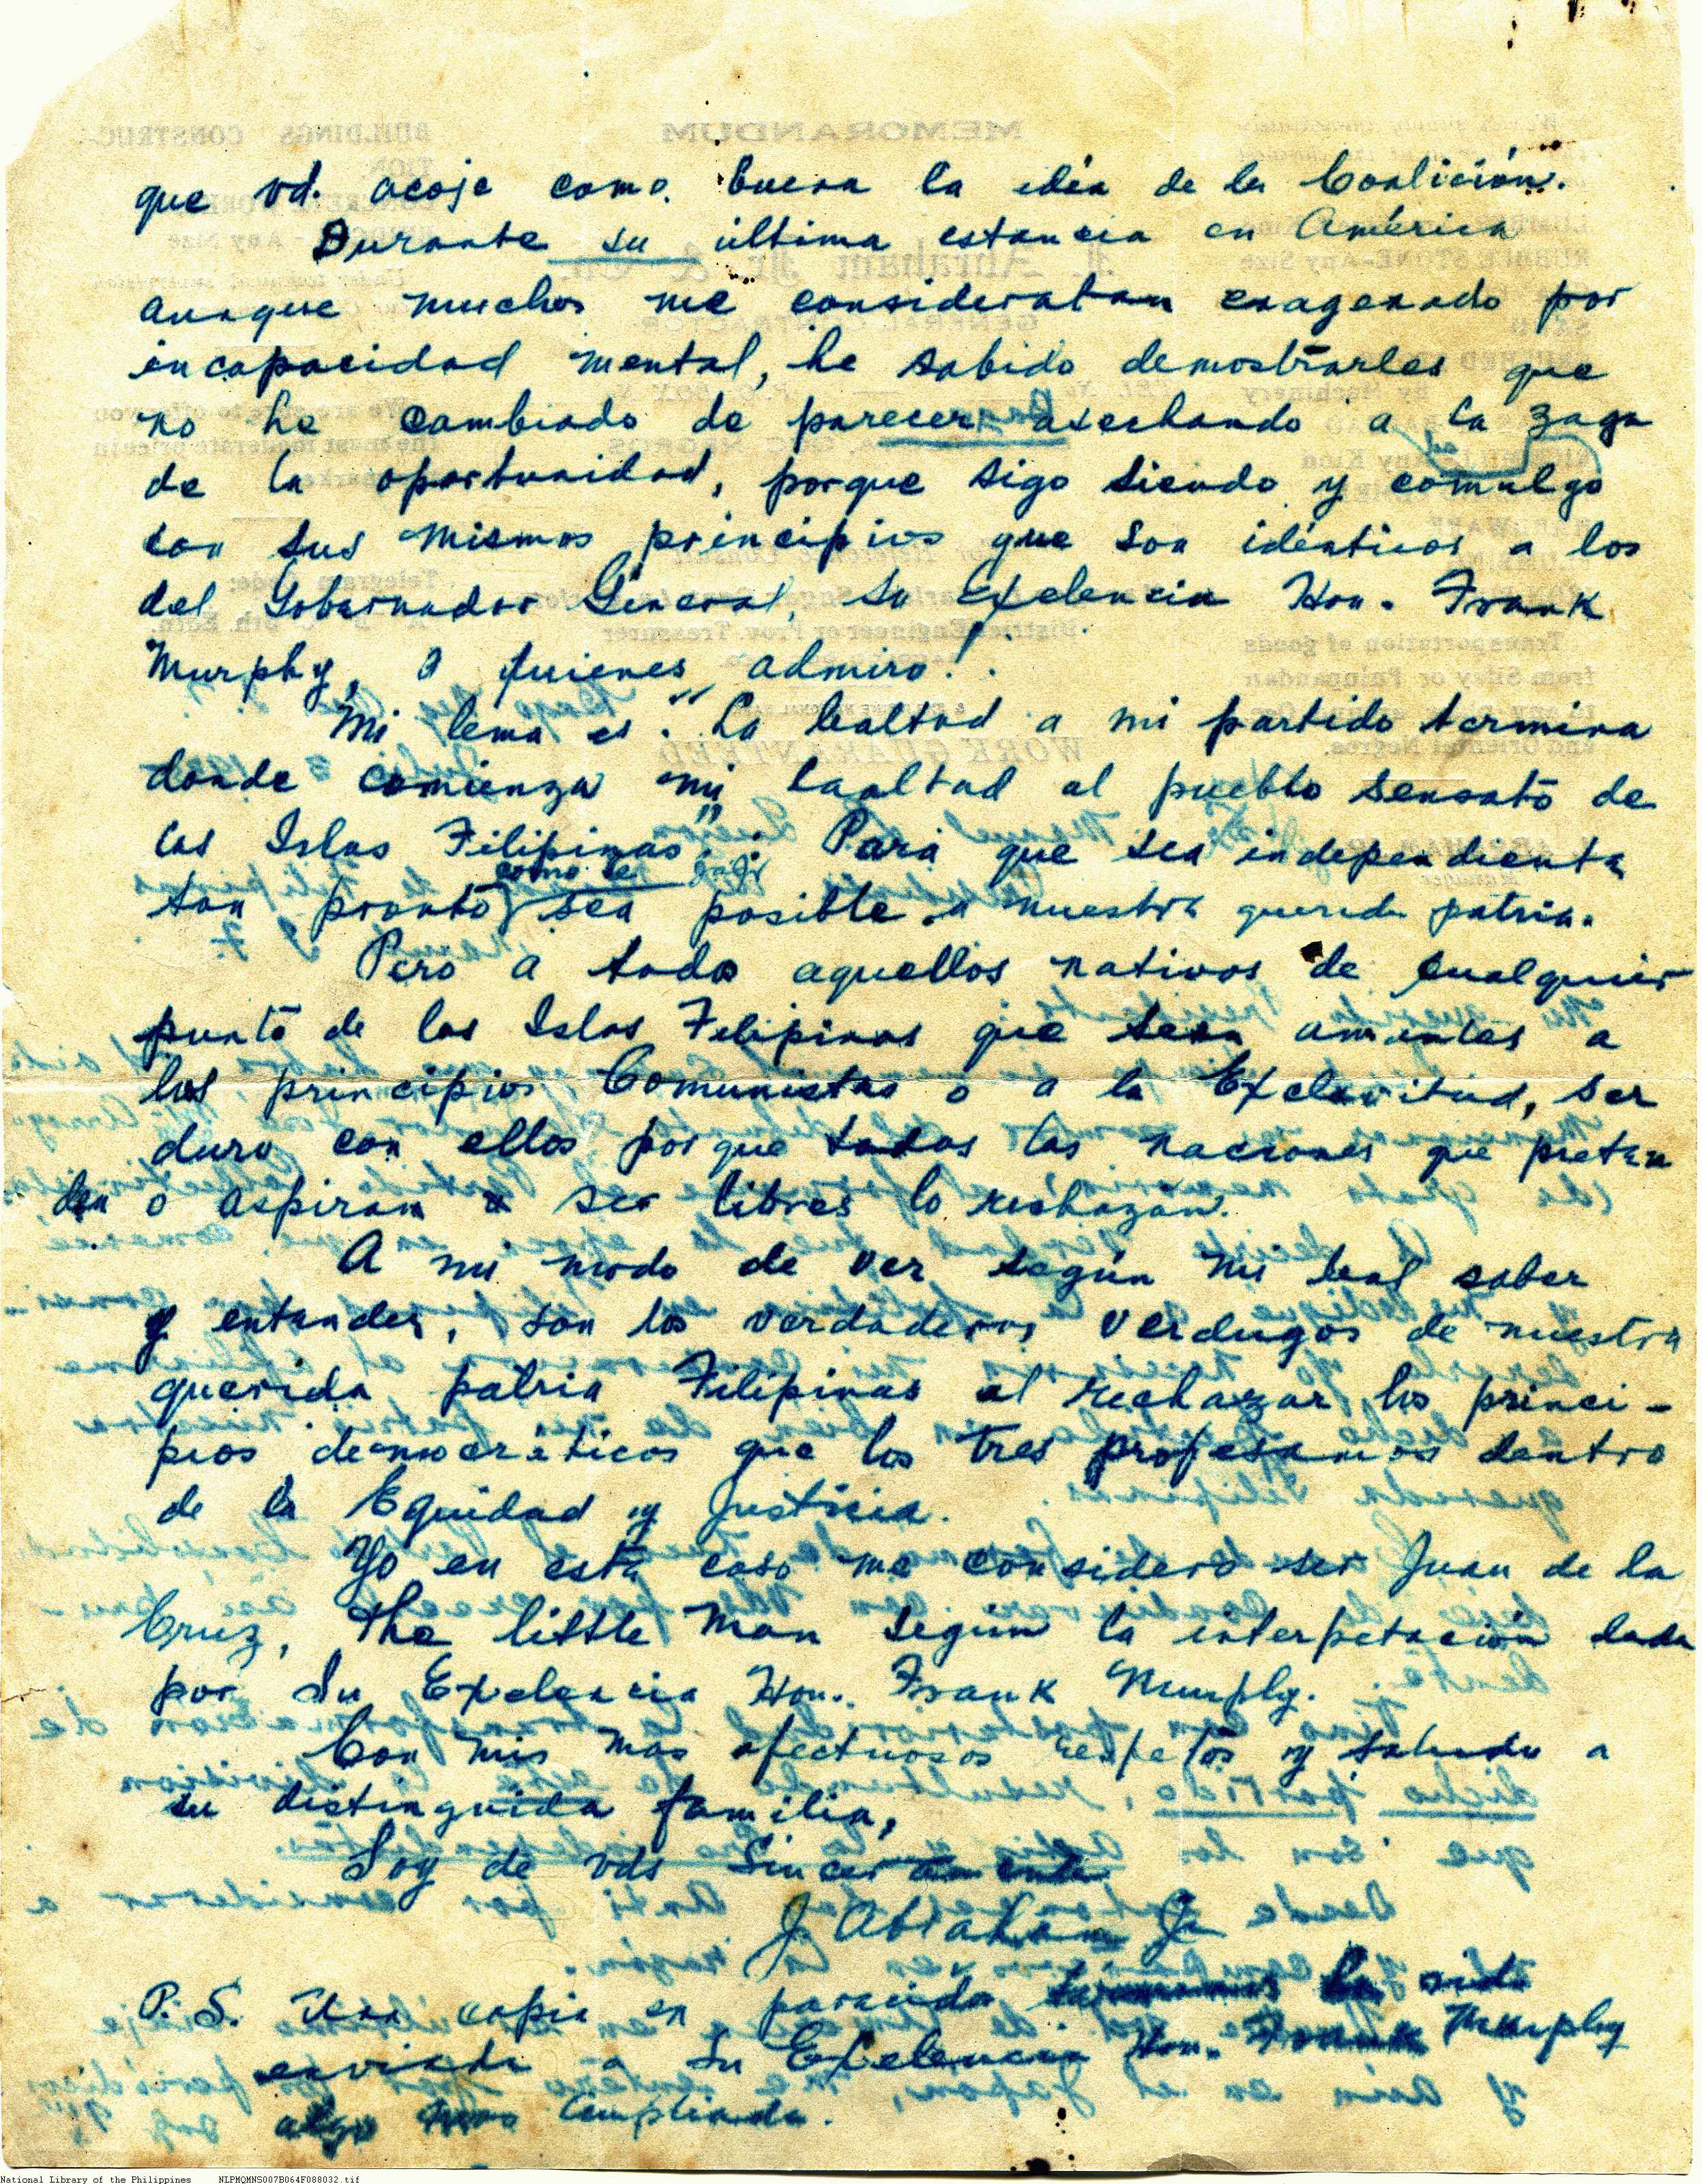 que vd. acoje como buena la idéa de la Coalición.
Durante su ultima estancia en América
aunque muchos me consideraban exagerado por
incapacidad mental, he sabido demostrarles que
no he cambiado de parecer asechando a la zaga
de la oportunidad, porque sigo siendo y comulgo
con sus mismos principios que son idénticos a los
del Gobernador General, Su Exelencia Hon. Frank
Murphy, a quienes admiro!.
Mi lema es: "La lealtad a mi partido termina
donde comienza mi lealtad al pueblo sensato de
las Islas Filipinas". Para que sea independiente
como se
tan pronto sea posible a nuestra querida patria.
Pero a todos aquellos nativos de cualquier
punto de las Islas Filipinas que sean amantes a
los principios Comunistas o a la Exclavitud, ser
duro con ellos porque todas las naciones que preten
den o aspiran a ser libres lo rechazan.
A mi modo de ver según mi leal saber
y entender, son los verdaderos verdugos de nuestra
querida patria Filipinas al rechazar los princi-
pios democráticos que los tres profesamos dentro
de la Equidad y Justicia.
Yo en esta caso me considero ser Juan de la
Cruz, the little man según la interpetación dada
por Su Exelencia Hon. Frank Murphy.
Con mis mas afectuosos respetos y saludo a
su distinguida familia,
Soy de vds Sinceramente
J. Abraham Jr
P.S. Una copia en parecido ha sido
enviada a Su Exelencia Hon. Frank Murphy
algo mas ampliada.
National Library of the Philippines NLPMQMNS007B064F088032.tif